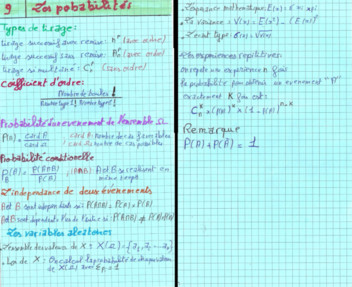 9 Les probabilités
Types de tirage:
tirage successif avec remise: n^p (avec ordre)
tirage successif sans remise: A_n^p (avec ordre)
tirage simultané: C_n^p (sans ordre)
Coefficient d'ordre:
Nombre de boules !
Nombre type 1! Nombre type 2!
Probabilité d'un evenement de l'ensemble Ω
P(A) = card A / card Ω card A: Nombre de cas favorables
card Ω: Nombre de cas possibles
Probabilité conditionelle
P_B(A) = P(A∩B) / P(B) (A∩B) A et B se réalisent en
même temps
L'independance de deux évenements
A et B sont independants si P(A∩B) = P(A) × P(B)
A et B sont dependants l'un de l'autre si P(A∩B) ≠ P(A)×P(B)
Les variables aléatoires
L'ensemble des valeurs de X: X(Ω) =
Loi de X: On calcul la probabilité de chaque
de X(Ω) avec Σp = 1
L'esperance mathématique E(x) =
La variance: V(x) = E(x²) - (E(x))²
L'ecart type σ(x) = √V(x)
Les experiences repetitives:
On repete une experience n fois
la probabilité pour obtenir un evenement "A"
exactement K fois est:
C_n^K × (P(A))^K × (1 - P(A))^(n-K)
Remarque
P(A) + P(Ā) = 1